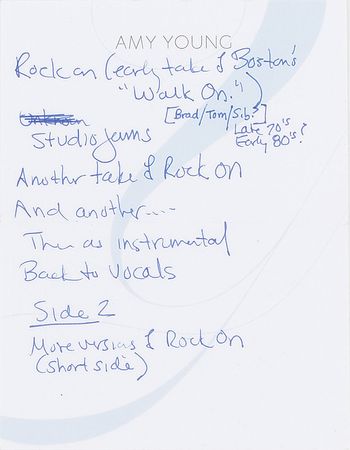 AMY YOUNG
Rock on (early take of Boston's
"Walk On.")
[Brad/Tom/Sib?]
Late 70's
Early 80's?
Unknown
Studio Jams
Another take of Rock On
And another....
Then as instrumental
Back to vocals
Side 2
More versions of Rock On
(short side)